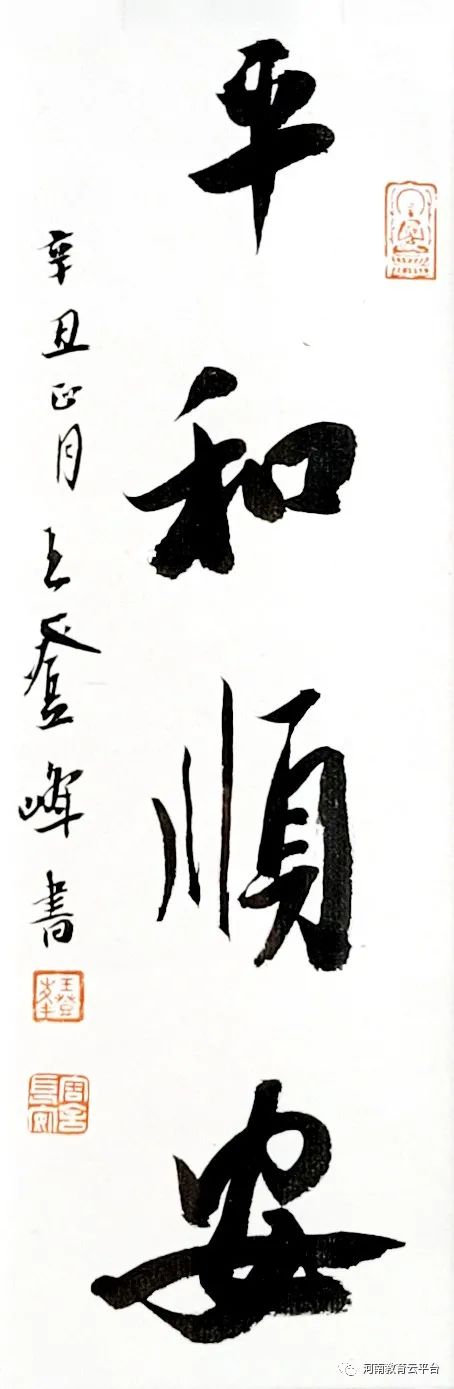 平和順安
辛丑正月王登峰書
王登峰
河南教育云平台